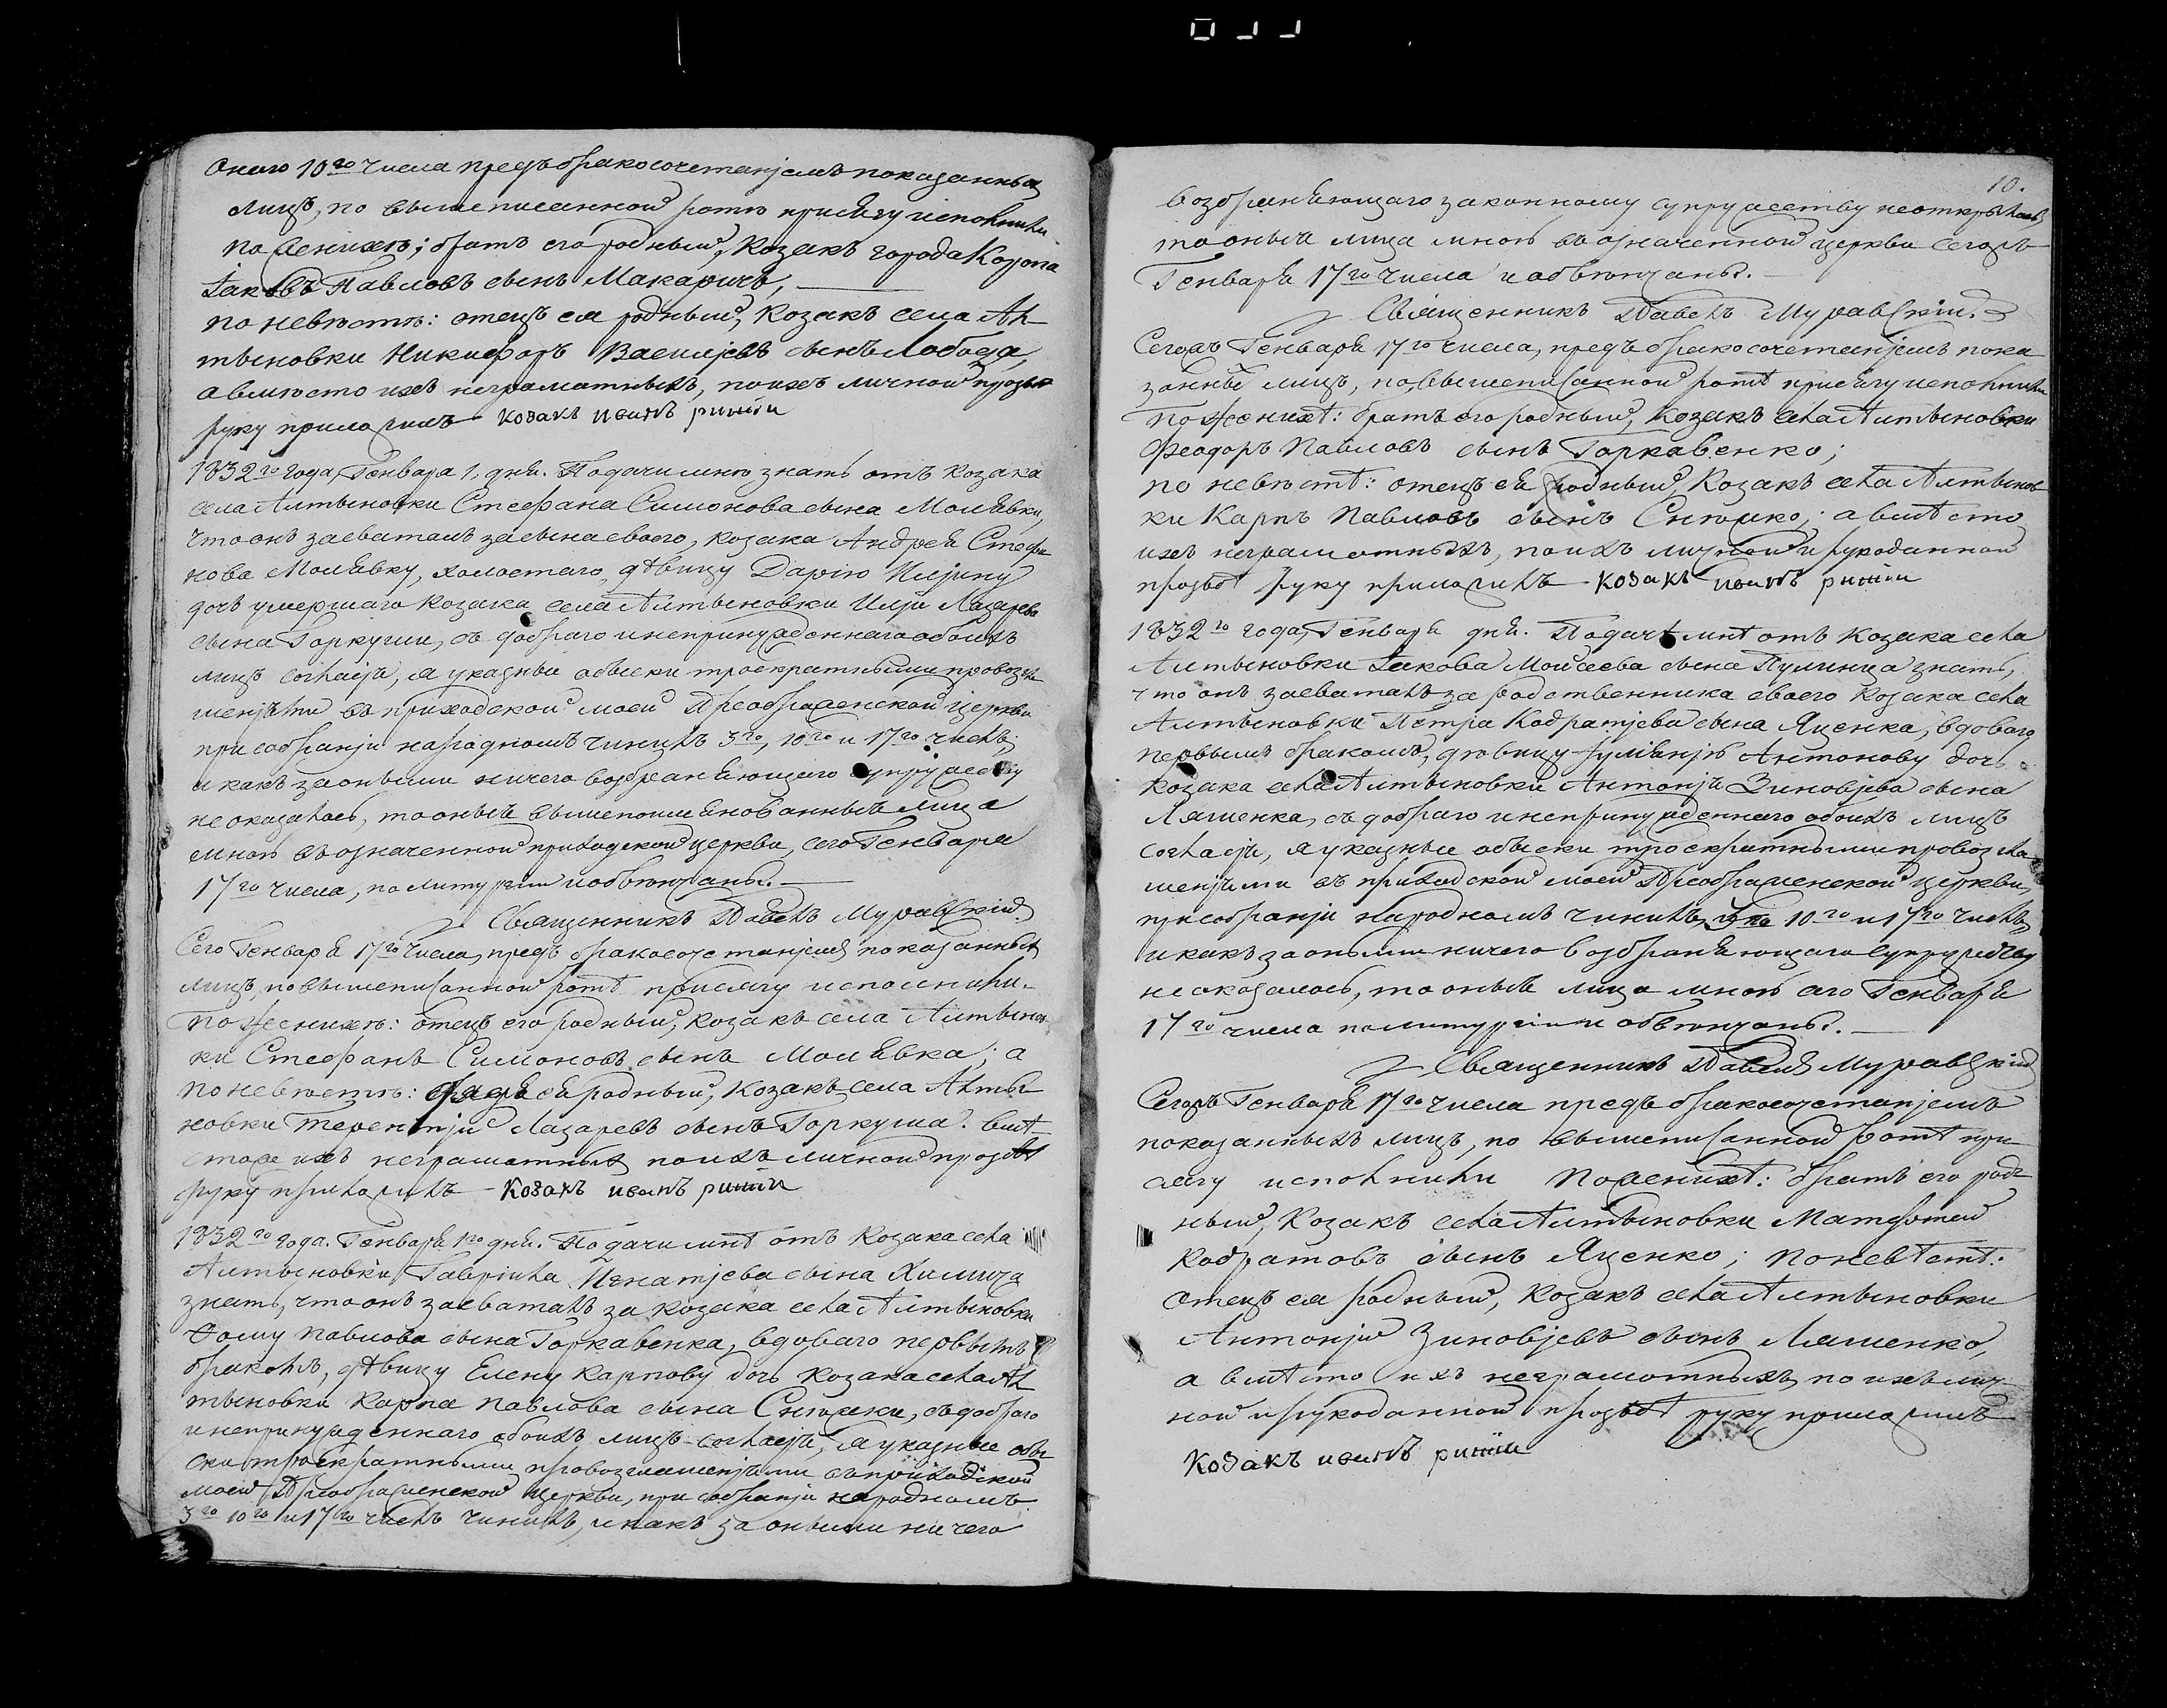 Онаго 10го числа предъ бракосочетанjемъ показанныхъ
лицъ, по вышеписанной ротѣ присягу исполнили
по женихѣ; братъ его родный, Козакъ города Коропа
Iаковъ Павловъ сынъ Макаричъ,
по невѣстѣ: отецъ ея родный, Козакъ села Ал-
тыновки Никифоръ Василjевъ сынъ Лобода,
а вмѣсто ихъ неграматныхъ, по ихъ личной прозьбѣ
руку приложилъ козакъ иванъ
1832го года, Генваря 1, дня. Подачи мнѣ знать отъ козака
села Алтыновки Стефана Симонова сына Молявки,
что онъ засваталъ за сына своего, козака Андрея Стефа
нова Молявку, холостаго, дѣвицу Дарiю Илjину
дочь умершаго козака села Алтыновки Илjи Лазарева
сына Горкуши, съ добраго и непринужденнаго обоихъ
лицъ согласjя, я указные обыски троекратными провозгла
шенjями въ приходской моей Преображенской церкви
при собранjи народномъ чинилъ 3го, 10го и 17го числъ;
и какъ за оными ничего возбраняющаго супружеству
не оказалось, то оные вышепоименованные лица
мною въ означенной приходской церкви, сего Генваря
17го числа, по литургiи и обвѣнчаны.
Священникъ Павелъ Муравскiй.
Сего Генваря 17го числа, предъ бракосочетанjемъ показанныхъ
лицъ, по вышеписанной ротѣ присягу исполнили.
по женихѣ: отецъ его родный, козакъ села Алтынов
ки Стефанъ Симоновъ сынъ Молявка; а
по невѣстѣ: дядя ея родный, козакъ села Алты
новки Терентjй Лазаревъ сынъ Горкуша. вмѣ
сто же ихъ неграмотныхъ по ихъ личной прозьбѣ
руку приложилъ козакъ иванъ
1832го года. Генваря 1го дня. Подачи мнѣ отъ козака села
Алтыновки Гаврiила Игнатjева сына Химича
знать, что онъ засваталъ за козака села Алтыновки
Фому Павлова сына Горкавенка, вдоваго первымъ
бракомъ, дѣвицу Елену Карпову дочь козака села Ал
тыновки Карпа Павлова сына Снѣжки, съ добраго
и непринужденнаго обоихъ лицъ согласjя, я указные обы
ски троекратными провозглашенjями въ приходской
моей Преображенской церкви, при собранjи народномъ
3го 10го и 17го числъ чинилъ, и какъ за оными ничего
10.
возбраняющаго законному супружеству не открылось,
то оные лица мною въ означенной церкви сегожъ
Генваря 17го числа и обвѣнчаны.
Священникъ Павелъ Муравскiй.
Сегожъ Генваря 17го числа, предъ бракосочетанjемъ пока
занныхъ лицъ, по вышеписанной ротѣ присягу исполнили
по женихѣ: братъ его родный, козакъ села Алтыновки
Феодоръ Павловъ сынъ Горкавенко;
по невѣстѣ: отецъ ея родный, Козакъ села Алтынов
ки Карпъ Павловъ сынъ Снѣжко; а вмѣсто
ихъ неграмотныхъ, по ихъ личной и рукоданной
прозьбѣ руку приложилъ козакъ иванъ
1832го года, Генваря дня. Подачѣ мнѣ отъ козака села
Алтыновки Iакова Моисеева сына Пулинца знать,
что онъ засваталъ за родственника своего козака села
Алтыновки Петра Кодратjева сына Яценка, вдоваго
первымъ бракомъ, дѣвицу Антонову дочь
козака села Алтыновки Антонjя Зиновjева сына
Ляшенка, съ добраго и непринужденнаго обоихъ лицъ
согласjя, я указные обыски троекратными провозгла
шенjями въ приходской моей Преображенской церкви,
при собранjи народномъ чинилъ 3го 10го и 17го числъ,
и какъ за оными ничего возбраняющаго супружеству
не оказалось, то оные лица мною сего Генваря
17го числа по литургiи и обвѣнчаны.
Священникъ Павелъ Муравскiй
Сегожъ Генваря 17го числа предъ бракосочетанjемъ
показанныхъ лицъ, по вышеписанной ротѣ при
сягу исполнили по женихѣ: братъ его род
ный, козакъ села Алтыновки Матфей
Кодратовъ сынъ Яценко; по невѣстѣ:
отецъ ея родный, козакъ села Алтыновки
Антонjй Зиновjевъ сынъ Ляшенко,
а вмѣсто ихъ неграмотныхъ, по ихъ лич
ной и рукоданной прозьбѣ руку приложилъ
козакъ иванъ